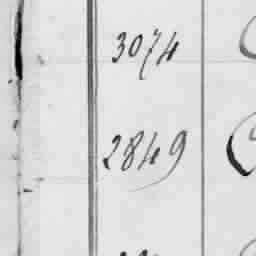 3074
2849